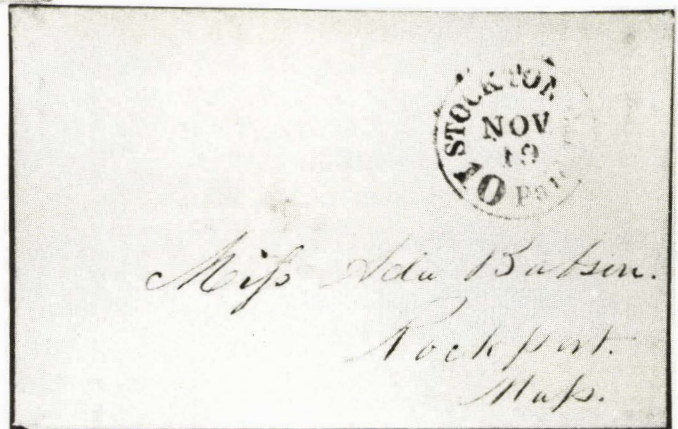 STOCKTON
NOV
19
10 Paid
Miss Ada Babson.
Rockport.
Mass.